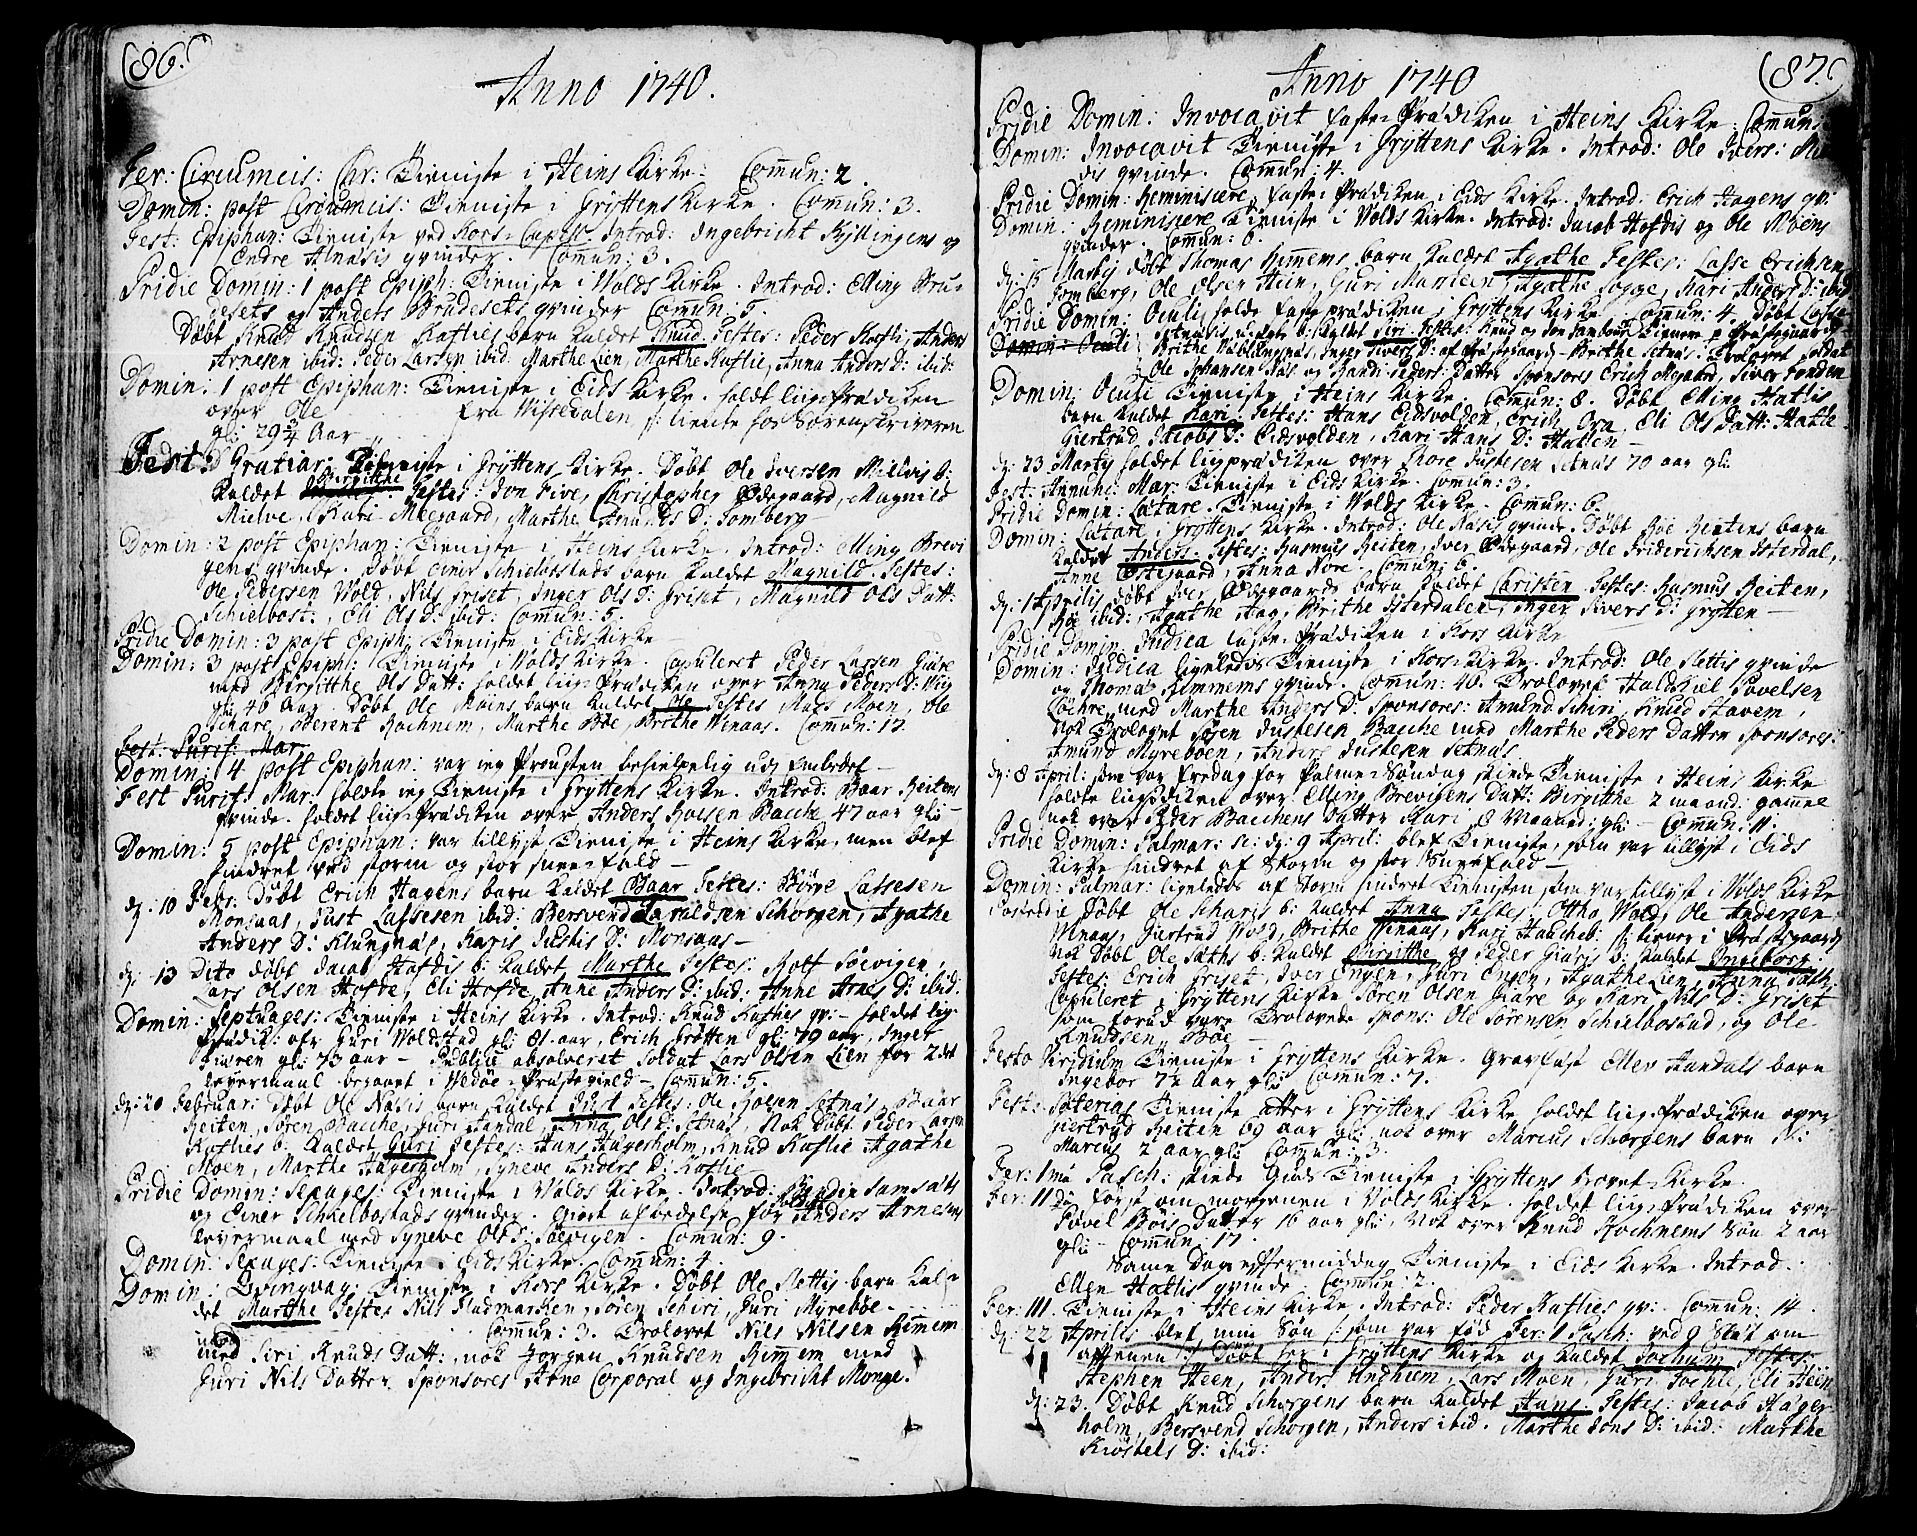 86.
Anno 1740.
Fer: Circumcis: Chr: Tieniste i Heins Kirke. Comun: 2.
Domin: post Circumcis: Tieniste i Gryttens Kirke. Comun: 3.
Fest: Epiphan: Tieniste ved Kors-Capell. Introd: Ingebricht Kyllingens og
Endre qvinder. Comun: 3.
Pridie Domin: 1 post Epiph: Tieniste i Volds Kirke. Introd: Elling Bru-
desets og Brudesets qvinder Comun: 5.
Døbt Knud Knudsen Kaflies barn kaldet Knud Testes: Peder Kafli, Anders
Arnesen ibid: Peder Larsen ibid. Marthe Lien, Marthe Kaflie, Anna Anders D: ibid:
Domin: 1 post Epiphan: Tieniste i Eids Kirke. holdt liigprædiken
over Ole fra Visdalen, tiente hos Sorenskriveren
gl: 29 3/4 Aar
Fest: Gratiar: Tieniste i Gryttens Kirke. Døbt Ole Iversen Mielvis b:
kaldet Birgitthe Testes: Jon Five, Christopher Ødegaard, Magnild
Mielve, Kari Moegaard, Marthe Amunds D: Tomberg
Domin: 2 post Epiphan: Tieniste i Heins Kirke. Introd: Elling Brevi
gens qvinde. Døbt Einer Schielbostads barn kaldet Magnild. Testes:
Ole Pedersen Vold, Nils Griset, Inger Ols D: Griset, Magnild Ols Datt:
Schielbost:, Eli Ols D: ibid: Comun: 5.
Pridie Domin: 3 post Epiph: Tieniste i Eids Kirke
Domin: 3 post Epiph: Tieniste i Volds Kirke. Copuleret Peder Larsen Giære
med Birgitthe Ols Datt: holdet liig-Prædiken over Anna Peders D:
gl: 46 Aar. Døbt Ole Moens barn kaldet Ole Testes Mats Moen, Ole
Schare, Berent Kochnem, Marthe Bøe, Brithe Venaas. Comun: 17.
Fest: Purif: Mar
Domin: 4 post Epiphan: var ieg Prousten behielpelig udj Embedet
Fest Purif: Mar. holdte ieg Tieniste i Gryttens Kirke. Introd: Baar Reitens
qvinde. holdet liig-Prædiken over Anders Holsen Bacche 47 aar gl:
Domin: 5 post Epiphan: var tillyst Tieniste i Heins Kirke, men blef
hindret ved storm og stor sneefald
d: 10 Febr: Døbt Erich Hagens barn kaldet Baar Testes: Børge Lassesen
Monsaas, Just Lassesen ibid: Bersvend Haraldsen Schorgen, Agathe
Anders D: Klungnæs, Karis Justis D: Monsaas
d: 13 Dito døbt Jacob Hofdis b: kaldet Marthe Testes: Rolf Søevigen,
Lars Olsen Hofde, Eli Hofde, Anne Anders D: ibid: Anne Arnes D: ibid.
Domin: Septuages: Tieniste i Heins Kirke. Introd: Knud Kathes qv: holdet lig-
prædik: ofr Guri Voldstad gl: 81 aar, Erich Grøtten gl: 79 aar, Inger
gl: 73 aar. Publicè absolveret Soldat Lars Olsen Lien for 2det
Leyermaal begaaet i Vedøe Præstegield. Comun: 5.
d: 20 Februar: Døbt Ole Næsis barn kaldet Just Testes: Ole Holsen Setnæs, Baar
Reiten, Søren Bacche, Guri Aandal, Anna Ols D: Setnæs, Nok Døbt Peder Larsen
Kaflies b: kaldet Guri Testes: Hans Hagerholm, Knud Kaflie Agathe
Moen, Marthe Hagerholm, Synneve Anders D: Kaflie
Pridie Domin: Sexages: Tieniste i Volds Kirke. Introd:
og Einer Schielbostads qvinder. Giort afbedelse for Anders Arnesens
Leyermaal med Synneve Ols D: Søevigen. Comun: 9.
Domin: Sexages: Tieniste i Eids Kirke. Comun: 4.
Domin: Qvinqvag: Tieniste i Kors Kirke. Døbt Ole Slettis barn kal-
det Marthe Testes Nils Fladmarchen, Søren Schiri, Guri Myrebøe.
Comun: 3. Trolovet Nils Nilsen Rimem
med Siri Knuds Datt:, nok Jorgen Knudsen Rimem med
Guri Nils Datter. Sponsores Arne Corporal og Ingebricht Monge.
87.
Anno 1740
Pridie Domin: Invocavit faste-Prædiken i Heins Kirke. Comun:
Domin: Invocavit Tieniste i Gryttens Kirke. Introd: Ole Ivers:
dis qvinde. Comun: 4.
Pridie Domin: Reminiscere, faste-Prædiken i Eids Kirke. Introd: Erich Hagens qv:
Domin: Reminiscere Tieniste i Volds Kirke. Introd: Jacob Hofdis og Ole Moens
qvinder. Comun: 6.
d: 15 Martij døbt Thomas Remmems barn kaldet Agathe Testes: Lasse Erichsen
Tomberg, Ole Olsen Hein, Guri Monsen, Agathe Sogge, Kari Anders D: ibid
Pridie Domin: Oculi holde fasteprædiken i Gryttens Kirke Comun: 4. Døbt Lasse
b: kaldet Siri Testes: Knud og Jon Tambour Tienere p Præstegaard
Domin: Oculi Brithe Veblungsnæs, Inger Sivers D: af Præstegaard Berthe Setnæs: Trolovet Soldat
Ole Johansen Næs og Randi Peders Datter Sponsores Erich Mgaard, Siver
Domin: Oculi Tieniste i Heins Kirke. Comun: 8. Døbt Elling Hatlis
barn kaldet Kari Testes: Hans Eidsvolden, Erich Ora, Eli Ols Datt: Hatle
Giertrud Jacobs D: Eidsvolden, Kari Hans D: Hatlen
d: 23 Martij holdet liigprædiken over Thore Justesen Setnæs 70 aar gl:
Fest: Annunc: Mar: Tieniste i Eids Kirke. Comun: 3.
Pridie Domin: Lætare. Tieniste i Volds Kirke. Comun: 6.
Domin: Lætare i Gryttens Kirke. Introd: Ole Næsis qvinde. Døbt Røe Reitens barn
kaldet Anders. Testes: Rasmus Reiten, Iver Ødegaard, Ole Friderichsen Isterdal,
Anne Østigaard, Anna Nore. Comun: 6.
d: 1 Aprilis døbt Iver Ødegaards barn kaldet Christen Testes: Rasmus Reiten,
Røe ibid:, Agathe Aag, Brithe Isterdalen, Inger Sivers D: Grytten
Pridie Domin: Judica faste-Prædiken i Kors Kirke
Domin: Judica ligeledes Tieniste i Kors-Kirke. Introd: Ole Slettis qvinde
og Thomas Remmems qvinde. Comun: 40. Trolovet Haldchiel Povelsen
med Marthe Anders D: Sponsores: Amund Schiri, Knud Stavem,
Nok Trolovet Søren Justesen Bacche med Marthe Peders Datter Sponsores:
Amund Myrebøen, Anders Justesen Setnæs.
d: 8 April: som var Fredag for Palme-Søndag skiede Tieniste i Heins Kirke
holdte liigprædiken over Elling Brevigens Datt: Birgitthe 2 maaned: gammel
nok over Peder Bacchens Datter Kari 8 Maaned: gl: Comun: 11.
Pridie Domin: Palmar: sc: d: 9 April: blef Tieniste, som var tillyst i Eids
Kirke hindret af Storm og stor Sneefald
Domin: Palmar: ligeledes af Storm hindret Tienisten, som var tillyst i Volds Kirke
Postridie Døbt Ole Scharis b: kaldet Anna Testes: Ottho Vold, Ole Andersen
Venaas, Giertrud Vold, Brithe Venaas, Kari Haucheb: tiener i Præstegaard
Nok Døbt Ole Sæths b: kaldet Birgithe og Peder Giæris b: kaldet Ingeborg.
Testes: Erich Griset, Iver Engen, Guri Engen, Agathe Lien, Anna Sæth:
Copuleret i Gryttens Kirke Søren Olsen Giære og Kari Nils D: Griset
som forud vare Trolovede Spons: Ole Sørensen Schielbostad, og Ole
Knudsen Bøe
Festo Viridium Tieniste i Gryttens Kirke. Gravfæst Ellev Aandals barn
Ingebor 7 1/2 Aar gl: Comun: 7.
Fest: Soteriæ Tieniste atter i Gryttens Kirke holdet liig-Prædiken over
Giertrud Reiten 69 aar gl: nok over Marcus Schorgens barn
Marcus 2 aar gl: Comun: 3.
Fer: 1mâ Pasch: skiede Guds Tieniste i Gryttens Hovet-Kirke.
Fer: 11dâ først om morgenen i Volds Kirke. holdet liig-Prædiken over
Povel Bøis Datter 16 aar gl: Nok over Knud Kochnems Søn 2 aar
gl: Comun: 17.
Same Dag eftermiddag Tieniste i Eids Kirke. Introd.
Ellen Hatlis qvinde. Comun: 2.
Fer: 111. Tieniste i Heins Kirke. Introd: Peder Kaflies qv: Comun: 14.
d: 22 Aprilis blef min Søn /: som var fød Fer: 1 Pasch: ved 9 Slet om
aftenen :/ Døbt her i Gryttens Kirke og kaldet Jochum Testes:
Stephen Heen, Anders Unhiem, Lars Moen, Guri Sochle, Eli Heen
d: 23. Døbt Knud Schorgens barn kaldet Hans. Testes: Jacob Hager-
holm, Bersvend Schorgen, Anders ibid. Marthe Jons D: ibid: Marthe
Kiøstels D: ibid: